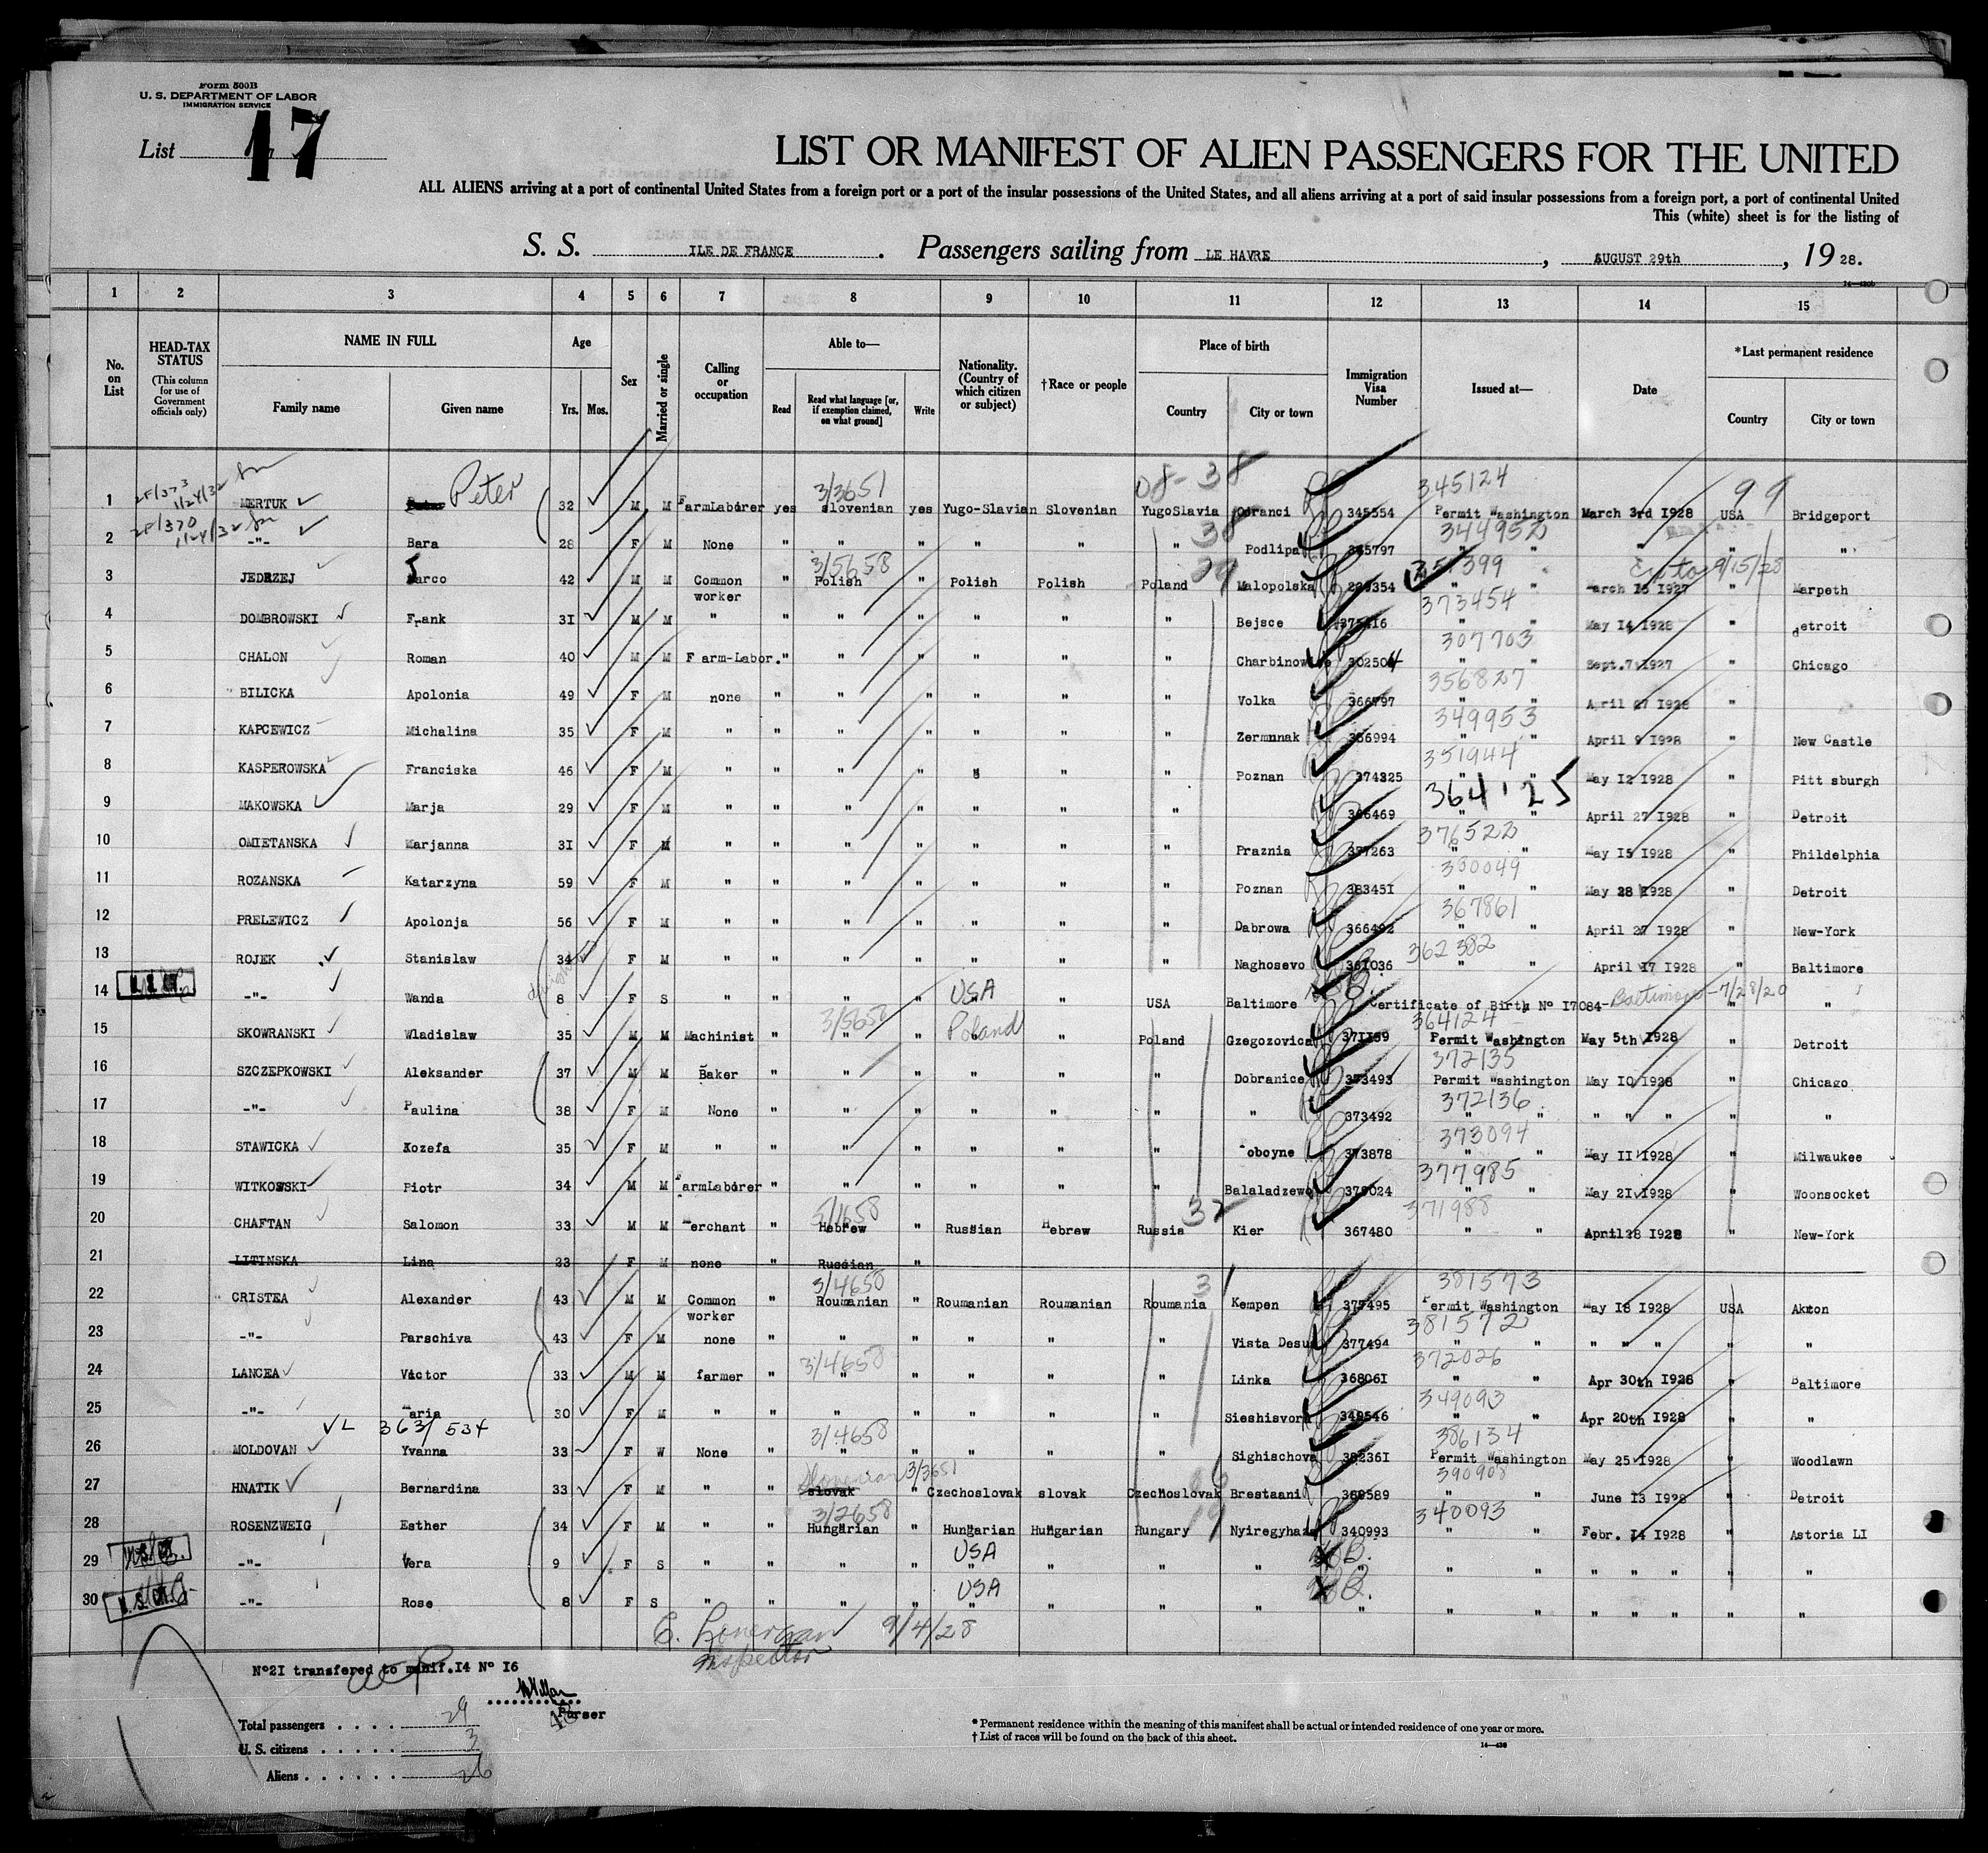 Form 500B
U. S. DEPARTMENT OF LABOR
IMMIGRATION SERVICE
List 17
LIST OR MANIFEST OF ALIEN PASSENGERS FOR THE UNITED
ALL ALIENS arriving at a port of continental United States from a foreign port or a port of the insular possessions of the United States, and all aliens arriving at a port of said insular possessions from a foreign port, a port of continental United
This (white) sheet is for the listing of
S. S. ILE DE FRANCE . Passengers sailing from LE HAVRE , AUGUST 29th , 19 28.
1 2 3 4 5 6 7 8 9 10 11 12 13 14 15
No. on List
HEAD-TAX STATUS (This column for use of Government officials only)
NAME IN FULL Family name Given name
Age Yrs. Mos.
Sex
Married or single
Calling or occupation
Able to— Read Read what language [or, if exemption claimed, on what ground] Write
Nationality. (Country of which citizen or subject)
†Race or people
Place of birth Country City or town
Immigration Visa Number
Issued at—
Date
*Last permanent residence Country City or town
2F/373 1/24/32 Peter 3/3651 08-38 345124 99
1 MERTUK 32 M M FarmLaborer yes slovenian yes Yugo-Slavian Slovenian YugoSlavia Odranci 345554 Permit Washington March 3rd I928 USA Bridgeport
2F/370 1/24/32 38 344952
2 -"- Bara 28 F M None " " " " " " Podlipa 345797 " " " " "
3/5658 351399 9/15/28
3 JEDRZEJ Marco 42 M M Common worker " Polish " Polish Polish Poland Malopolska March I927 " Marpeth
373454
4 DOMBROWSKI Frank 3I M M " " " " " " " Bejsce May I4 I928 " detroit
307703
5 CHALON Roman 40 M M F arm-Labor. " " " " " " 302504 " " Sept.7 I927 " Chicago
356827
6 BILICKA Apolonia 49 F M none " " " " " " Volka 366797 " " April 27 I928 "
349953
7 KAPCEWICZ Michalina 35 F M " " " " " " " Zermunak 356994 " " April 9 I928 " New Castle
351944
8 KASPEROWSKA Franciska 46 F M " " " " " " Poznan 374325 " " May I2 I928 " Pitt sburgh
364125
9 MAKOWSKA Marja 29 F M " " " " " " " 366469 " " April 27 I928 " Detroit
376522
10 OMIETANSKA Marjanna 3I F M " " " " " " " Praznia 377263 " " May I5 I928 " Phildelphia
380049
11 ROZANSKA Katarzyna 59 F M " " " " " " " Poznan 38345I " " May 28 I928 " Detroit
367861
12 PRELEWICZ Apolonja 56 F M " " " " " " " Dabrowa 366492 " " April 27 I928 " New-York
362382
13 ROJEK Stanislaw 34 F M " " " " " " " Naghosevo 36I036 " " April I7 I928 " Baltimore
14 -"- Wanda 8 F S " " " " USA " USA Baltimore Certificate of Birth N° I7084- Baltimore-7/28/20 " "
3/5658 364124
15 SKOWRANSKI Wladislaw 35 M M Machinist " " " Poland " Poland Gzegozovica 37II59 Permit Washington May 5th I928 " Detroit
372135
16 SZCZEPKOWSKI Aleksander 37 M M Baker " " " " " " Dobranice 373493 Permit Washington May I0 I928 " Chicago
372136
17 -"- Paulina 38 F M None " " " " " " " 373492 " " " " " " "
373094
18 STAWICKA Kozefa 35 F M " " " " " " " oboyne 373878 " " May II I928 " Milwaukee
377985
19 WITKOWSKI Piotr 34 M M FarmLaborer " " " " " " Balaladzewo 379024 " " May 2I I928 " Woonsocket
5/1658 32 371988
20 CHAFTAN Salomon 33 M M Merchant " Hebrew " Russian Hebrew Russia Kier 367480 " " April28 I928 " New-York
21 LITINSKA Lina 23 F M none " Russian "
3/4650 31 381573
22 CRISTEA Alexander 43 M M Common worker " Roumanian " Roumanian Roumanian Roumania Kempen 377495 Permit Washington May I8 I928 USA Akron
381572
23 -"- Parschiva 43 F M none " " " " " " Vista Desus 377494 " " " " " " "
3/4658 372026
24 LANCEA Victor 33 M M farmer " " " " " " Linka 36806I " " Apr 30th I928 " Baltimore
349093
25 -"- Maria 30 F M " " " " " " " Sieshisvora 349546 " " Apr 20th I928 " "
VL 363/534 3/4658 386134
26 MOLDOVAN Yvanna 33 F W None " " " " " " Sighischova 38236I Permit Washington May 25 I928 " Woodlawn
Slovenian 3/3651 390908
27 HNATIK Bernardina 33 F M " " slovak " Czechoslovak slovak Czechoslovak Brestaani 389589 " " June I3 I928 " Detroit
3/2658 19 340093
28 ROSENZWEIG Esther 34 F M " " Hungarian " Hungarian Hungarian Hungary Nyiregyhaza 340993 " " Febr. I4 I928 " Astoria LI
29 -"- Vera 9 F S " " " " USA " " " " " " " " " "
30 -"- Rose 8 F S " " " " USA " " " " " " " " " "
E. Lonergan 9/4/28
Inspector
N°2I transfered to manif.I4 N° I6
Purser
Total passengers . . . . 29
U. S. citizens . . . . . 3
Aliens . . . . . . 26
* Permanent residence within the meaning of this manifest shall be actual or intended residence of one year or more.
† List of races will be found on the back of this sheet.
14—430